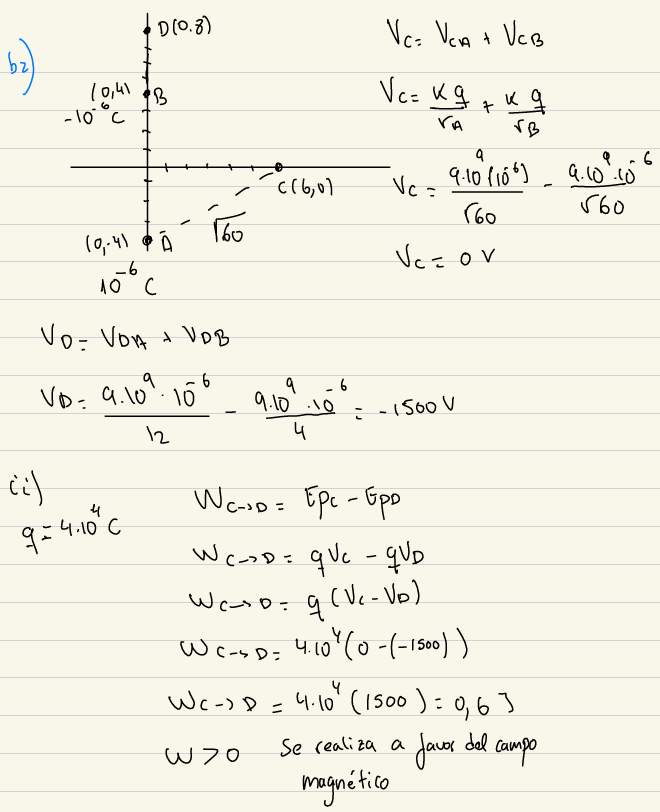 b2)
D(0.8)
(0,4) B
-10⁻⁶ C
C(6,0)
√60
(0,-4) A
10⁻⁶ C
V_C = V_CA + V_CB
V_C = K q / r_A + K q / r_B
V_C = 9.10⁹ (10⁻⁶) / √60 - 9.10⁹ .10⁻⁶ / √60
V_C = 0 V
V_D = V_DA + V_DB
V_D = 9.10⁹ . 10⁻⁶ / 12 - 9.10⁹ .10⁻⁶ / 4 = -1500 V
ii)
q = 4.10⁴ C
W C→D = Ep_C - Ep_D
W C→D = qV_C - qV_D
W C→D = q (V_C - V_D)
W C→D = 4.10⁴ (0 - (-1500))
W C→D = 4.10⁴ (1500) = 0,6 J
W > 0 Se realiza a favor del campo
magnético